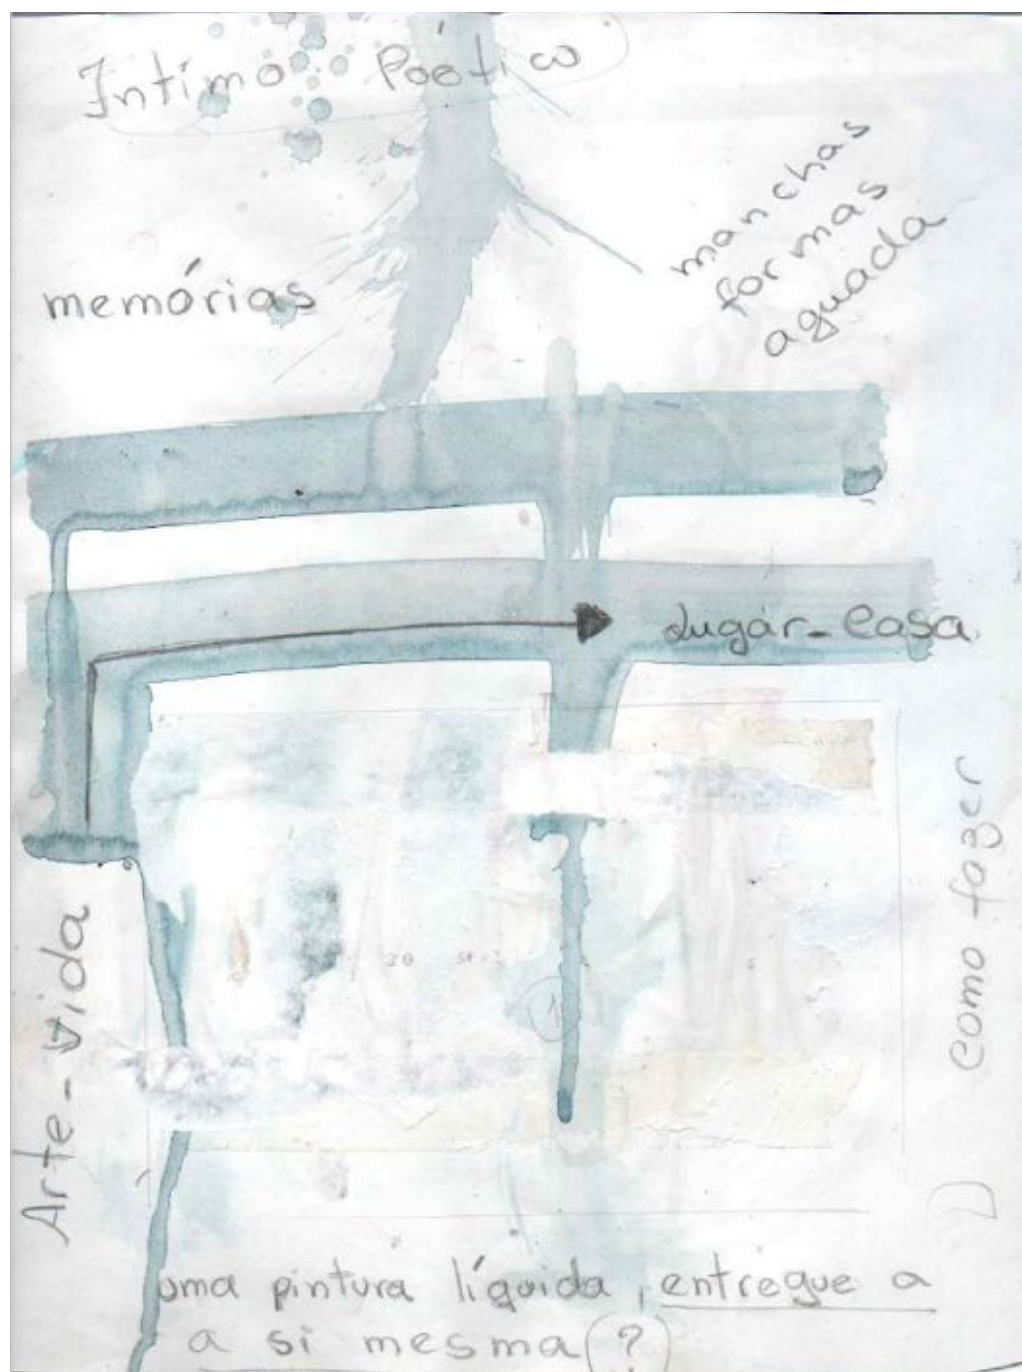 Íntimo Poético
memórias
manchas
formas
aguada
Lugar-Casa
como fazer
Arte-vida
uma pintura líquida, entregue a
a si mesma (?)